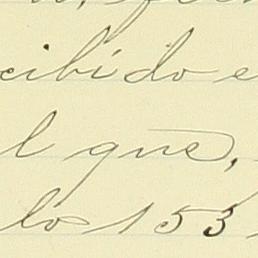 cibido e
l que,
lo 153